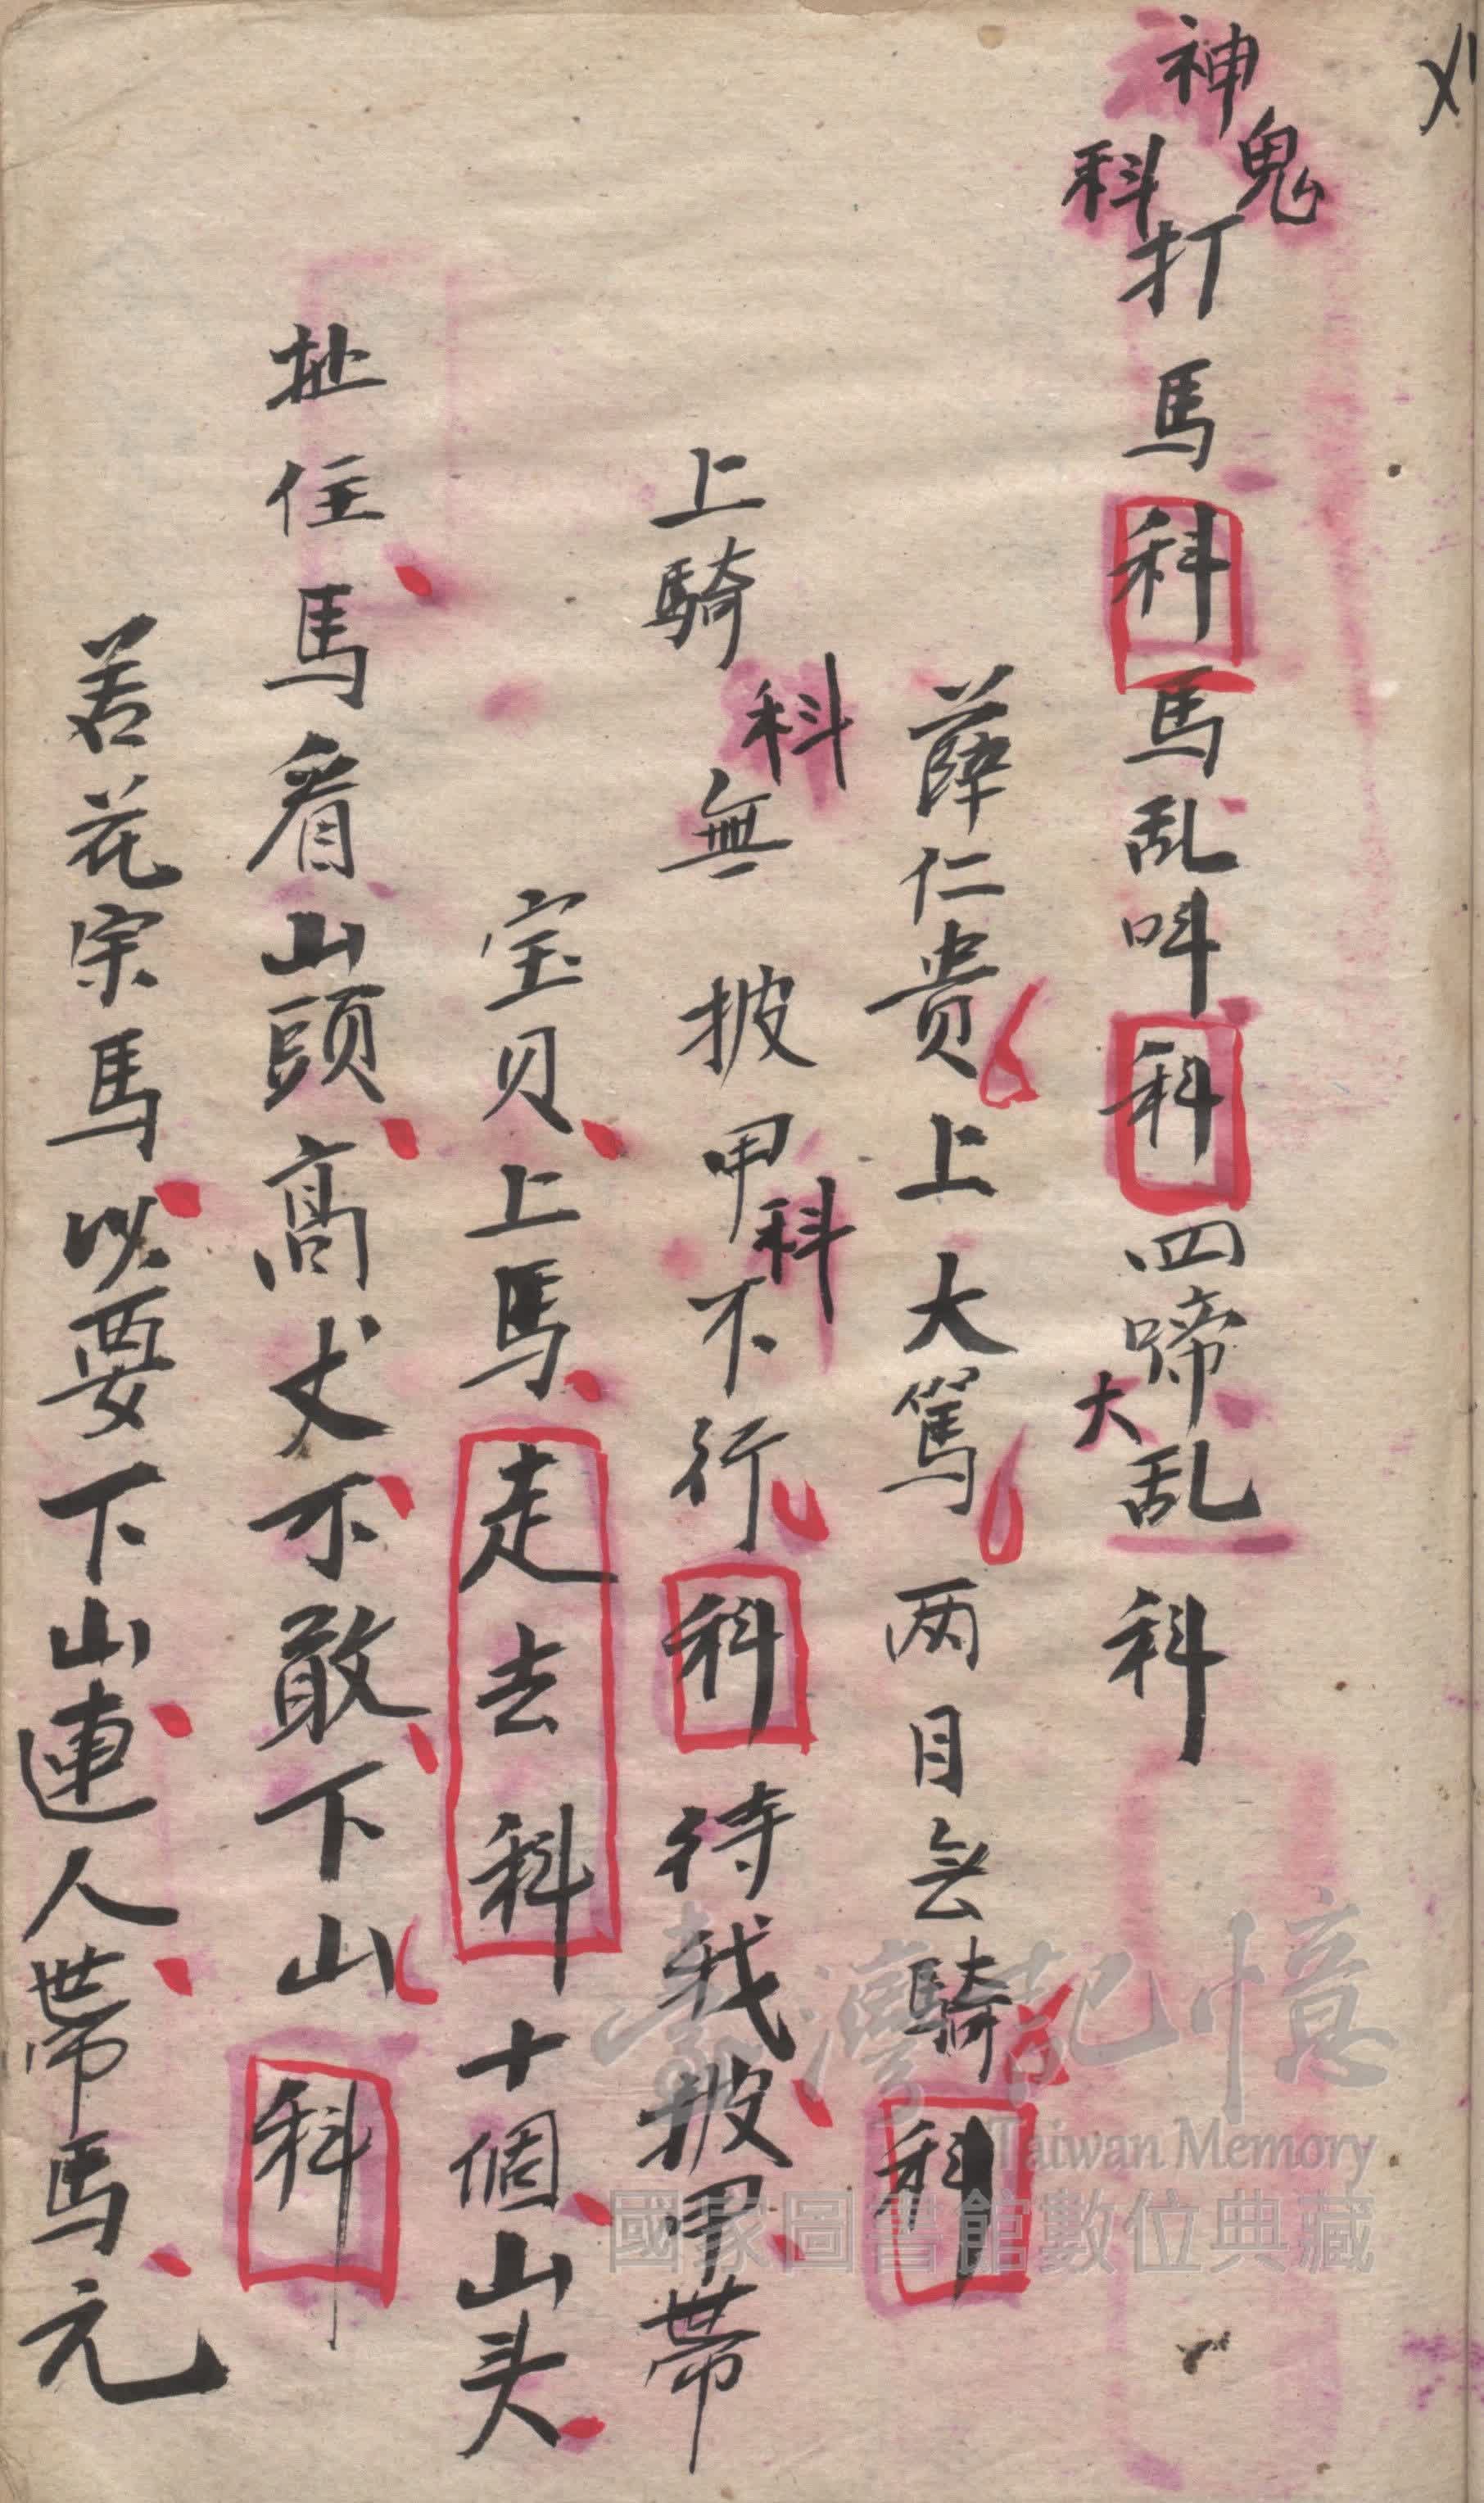 神鬼科打馬科馬乱叫科四啼大乱科
薛仁贵上大篤两目会騎科
上騎科無披甲科不行科待我披甲帯
宝贝上马走去科十個山头
扯住馬看山頭高丈不敢下山科
若花宗馬以要下山連人帯馬元
臺灣記憶
Taiwan Memory
國家圖書館數位典藏